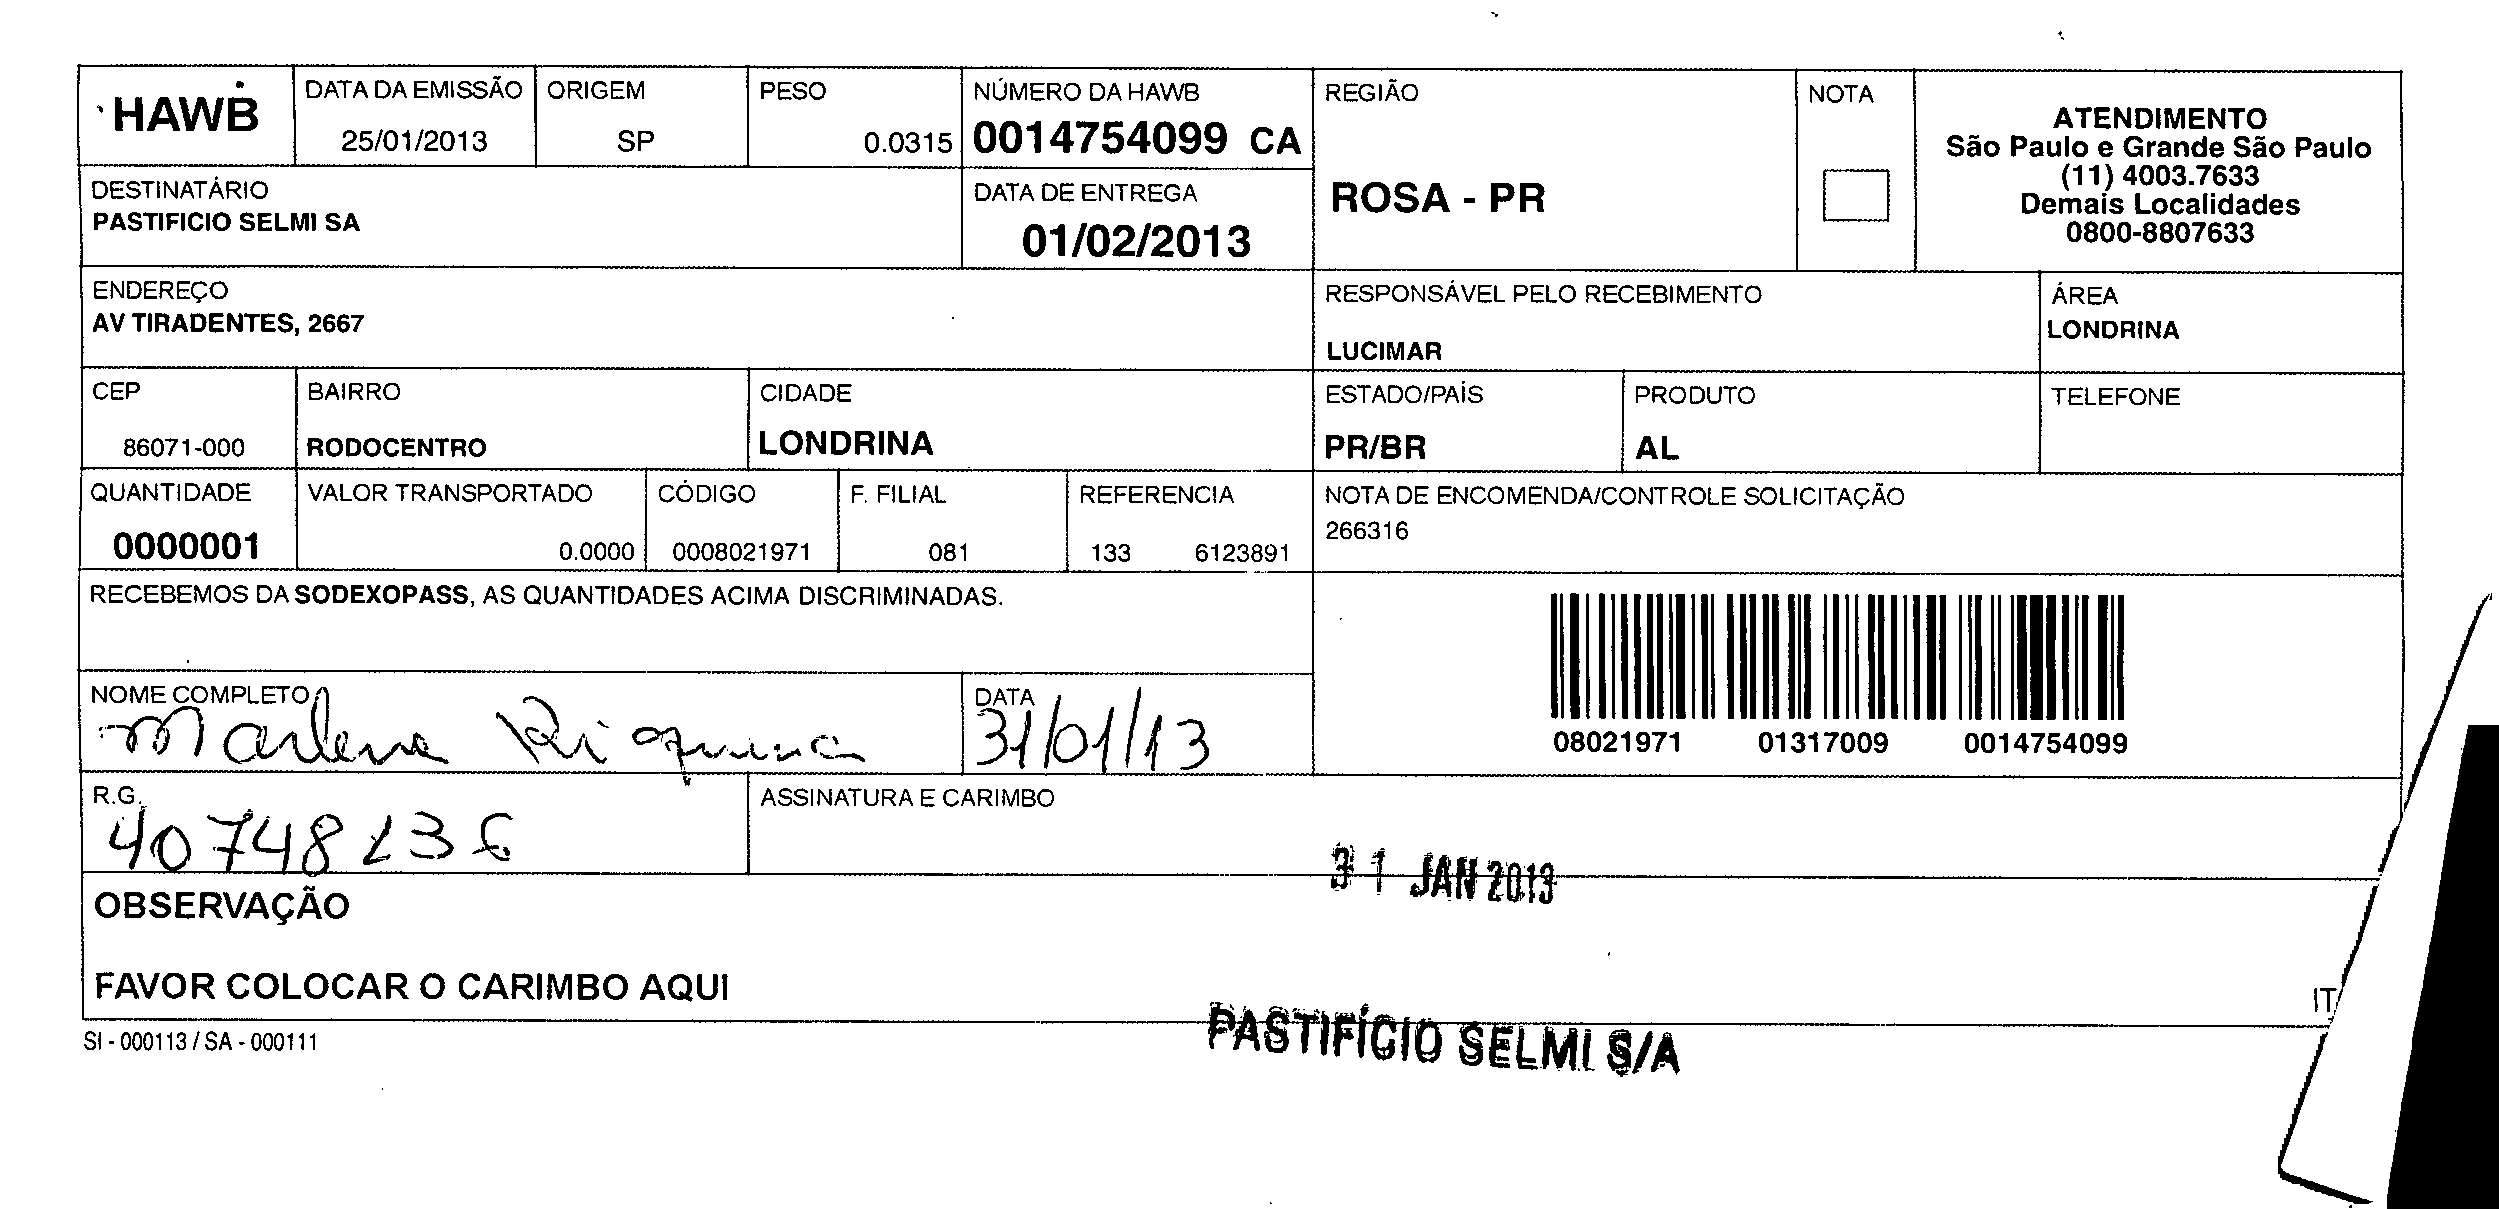 HAWB
DATA DA EMISSÃO
25/01/2013
ORIGEM
SP
PESO
0.0315
NÚMERO DA HAWB
0014754099 CA
REGIÃO
ROSA - PR
NOTA
ATENDIMENTO
São Paulo e Grande São Paulo
(11) 4003.7633
Demais Localidades
0800-8807633
DESTINATÁRIO
PASTIFICIO SELMI SA
DATA DE ENTREGA
01/02/2013
ENDEREÇO
AV TIRADENTES, 2667
RESPONSÁVEL PELO RECEBIMENTO
LUCIMAR
ÁREA
LONDRINA
CEP
86071-000
BAIRRO
RODOCENTRO
CIDADE
LONDRINA
ESTADO/PAÍS
PR/BR
PRODUTO
AL
TELEFONE
QUANTIDADE
0000001
VALOR TRANSPORTADO
0.0000
CÓDIGO
0008021971
F. FILIAL
081
REFERENCIA
133 6123891
NOTA DE ENCOMENDA/CONTROLE SOLICITAÇÃO
266316
RECEBEMOS DA SODEXOPASS, AS QUANTIDADES ACIMA DISCRIMINADAS.
08021971 01317009 0014754099
NOME COMPLETO
Marlene
DATA
31/01/13
R.G.
40748136
ASSINATURA E CARIMBO
31 JAN 2013
OBSERVAÇÃO
FAVOR COLOCAR O CARIMBO AQUI
IT
PASTIFÍCIO SELMI S/A
SI - 000113 / SA - 000111